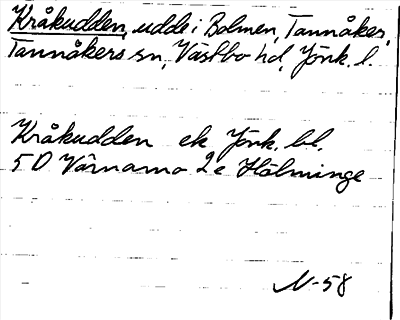 Kråkudden, udde i Bolmen, Tannåker,
Tannåkers sn, Västbo hd, Jönk. l.
Kråkudden ek Jönk. bl.
5D Värnamo 2e Hölminge
N-58